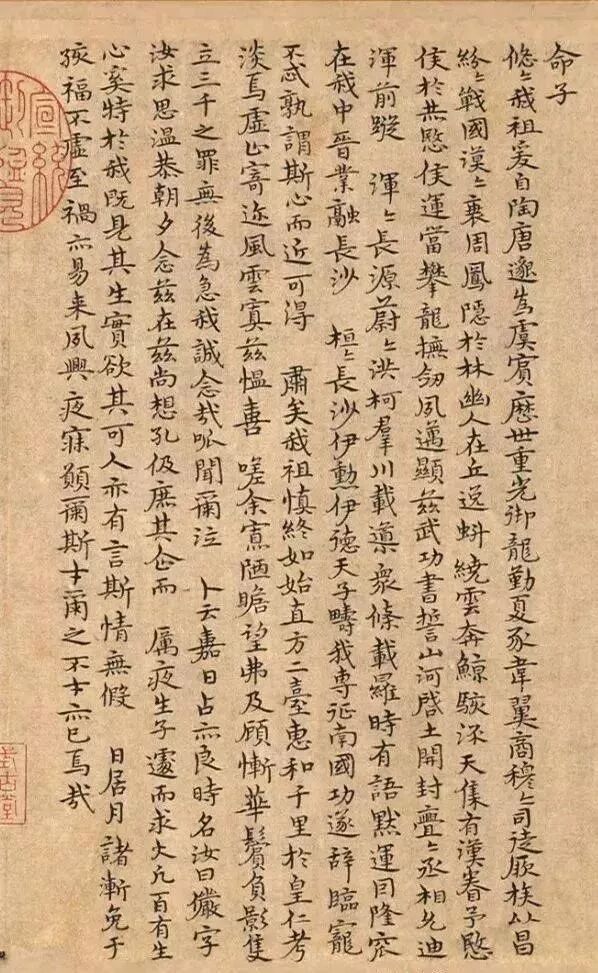 命子
悠〻我祖爰自陶唐邈為虞賓歷世重光御龍勤夏豕韋翼商穆〻司徒厥族以昌
紛〻戰國漠〻衰周鳳隱於林幽人在丘逸虯繞雲奔鯨駭流天集有漢眷予愍
侯於赫愍侯運當攀龍撫劒夙邁顯茲武功書誓山河啓土開封亹〻丞相允迪
渾前蹤 渾〻長源蔚〻洪柯羣川載導衆條載羅時有語默運因隆窊
在我中晉業融長沙 桓〻長沙伊勳伊德天子疇我專征南國功遂辭臨寵
不忒孰謂斯心而近可得 肅矣我祖慎終如始直方二臺惠和千里於皇仁考
淡焉虛止寄迹風雲寘茲慍喜 嗟余寡陋瞻望弗及顧慚華鬢負影隻
立三千之罪無後為急我誠念哉呱聞爾泣 卜云嘉日占亦良時名汝曰儼字
汝求思溫恭朝夕念茲在茲尚想孔伋庶其企而 厲夜生子遽而求火凡百有生
心奚特於我既見其生實欲其可人亦有言斯情無假 日居月諸漸免于
孩福不虛至禍亦易来夙興夜寐願爾斯才爾之不才亦已焉哉
宣統